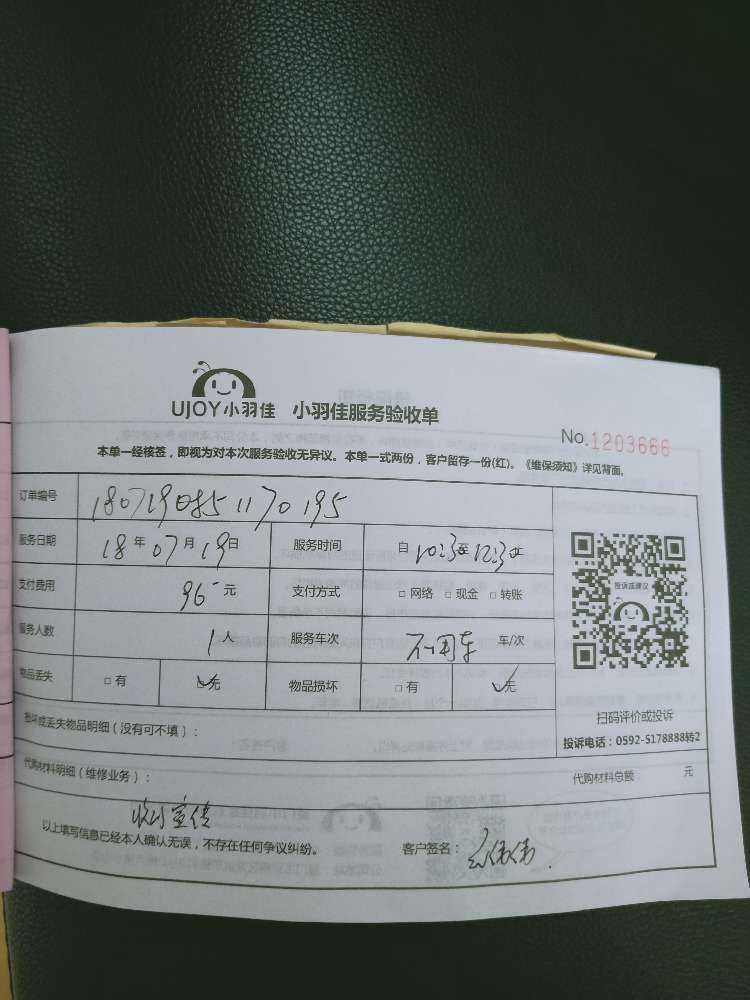 UJOY小羽佳 小羽佳服务验收单
No.1203666
本单一经核签，即视为对本次服务验收无异议。本单一式两份，客户留存一份(红)。《维保须知》详见背面。
订单编号 1807190851170195
服务日期 18年07月19日 服务时间 自10:30至12:30止
支付费用 96元 支付方式 □网络 □现金 □转账
服务人数 1人 服务车次 不用车 车/次
物品丢失 □有 无 物品损坏 □有 无
投诉或建议
扫码评价或投诉
投诉电话：0592-5178888转2
损坏或丢失物品明细（没有可不填）：
代购材料明细（维修业务）： 代购材料总额 元
宣传
以上填写信息已经本人确认无误，不存在任何争议纠纷。 客户签名：